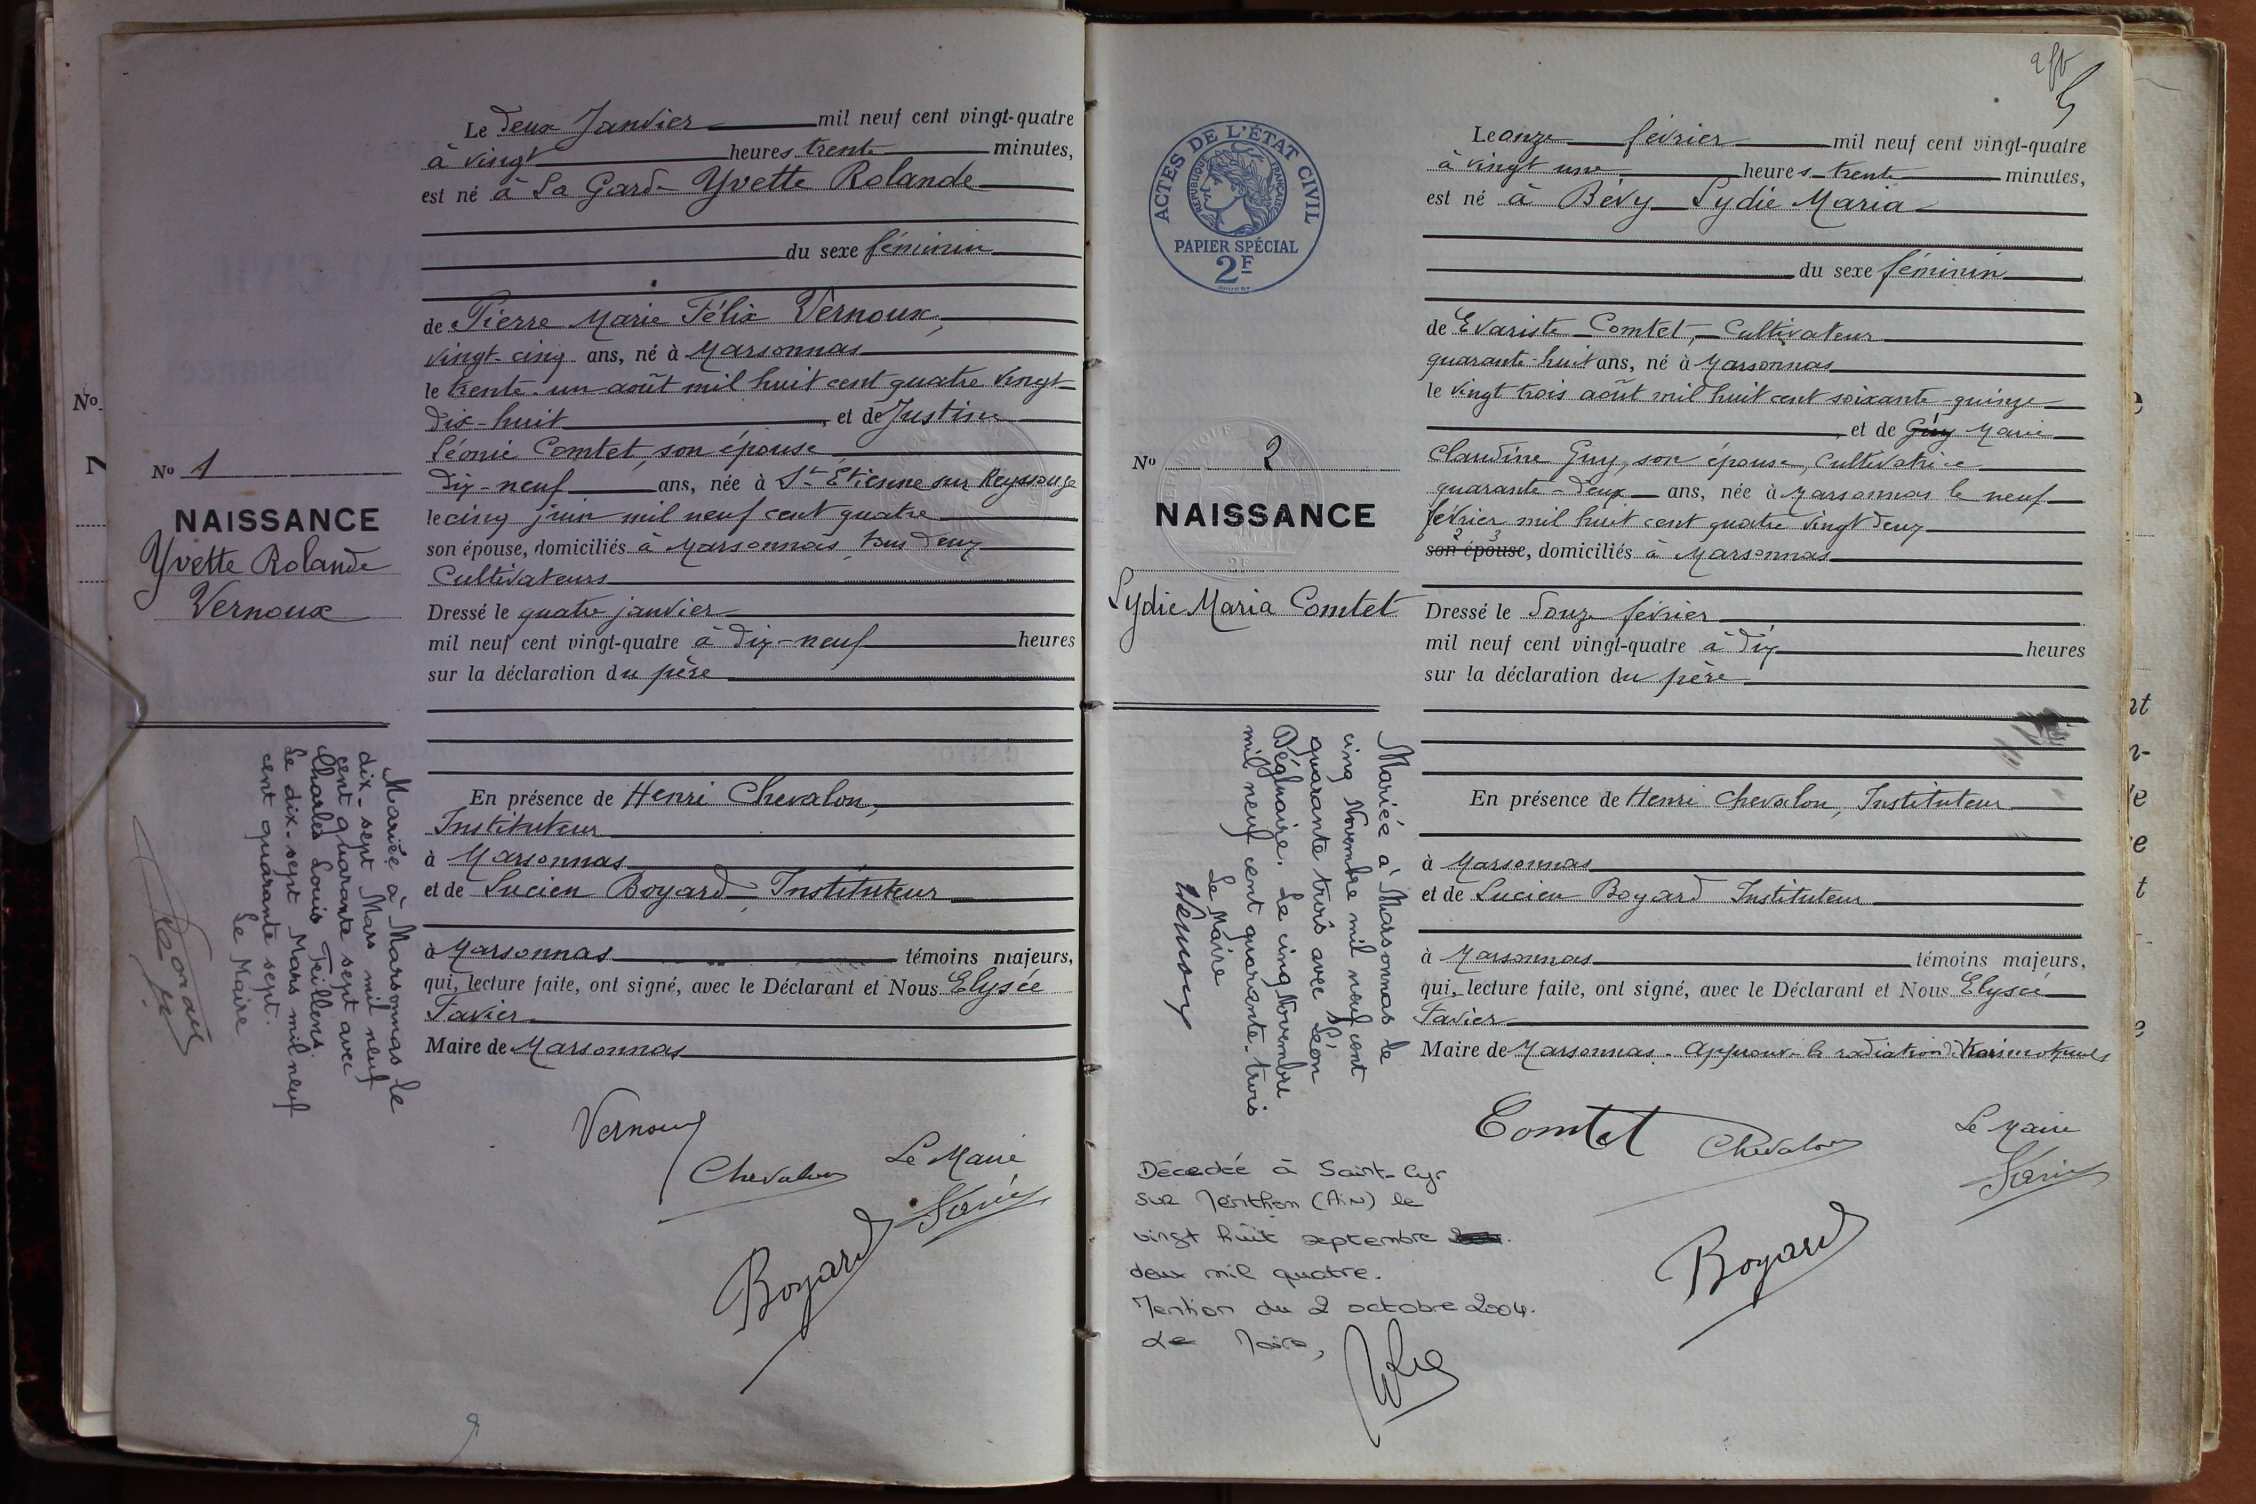 Le deux Janvier mil neuf cent vingt-quatre
à vingt heures trente minutes,
est né à La Garde Yvette Rolande
du sexe féminin
de Pierre Marie Félix Vernoux,
vingt-cinq ans, né à Marsonnas
le trente-un août mil huit cent quatre vingt
dix-huit, et de Justine
Léonie Comtet, son épouse
dix-neuf ans, née à St Etienne sur Reyssouze
le cinq juin mil neuf cent quatre
son épouse, domiciliés à Marsonnas, tous deux
Cultivateurs
Dressé le quatre janvier
mil neuf cent vingt-quatre à dix-neuf heures
sur la déclaration du père
En présence de Henri Chevalon,
Instituteur
à Marsonnas
et de Lucien Boyard Instituteur
à Marsonnas témoins majeurs,
qui, lecture faite, ont signé, avec le Déclarant et Nous Elysée
Favier
Maire de Marsonnas
Vernoux
Chevalon
Le Maire
Favier
Boyard
No.
No 1
NAISSANCE
Yvette Rolande
Vernoux
Mariée à Marsonnas le
dix-sept Mars mil neuf
cent quarante sept avec
Charles Louis Teillens.
Le dix-sept Mars mil neuf
cent quarante sept.
Le Maire
5
ACTES DE L'ÉTAT CIVIL
RÉPUBLIQUE FRANÇAISE
PAPIER SPÉCIAL
2F
Le onze février mil neuf cent vingt-quatre
à vingt une heures trente minutes,
est né à Bévy Lydie Maria
du sexe féminin
de Evariste Comtet, Cultivateur
quarante-huit ans, né à Marsonnas
le vingt trois août mil huit cent soixante-quinze
, et de Guy Marie
Claudine Guy, son épouse, Cultivatrice
quarante-deux ans, née à Marsonnas le neuf
février mil huit cent quatre vingt deux
son épouse, domiciliés à Marsonnas
Dressé le Douze février
mil neuf cent vingt-quatre à dix heures
sur la déclaration du père
En présence de Henri Chevalon, Instituteur
à Marsonnas
et de Lucien Boyard Instituteur
à Marsonnas témoins majeurs,
qui, lecture faite, ont signé, avec le Déclarant et Nous Elysée
Favier
Maire de Marsonnas. Approuvé la radiation de trois mots nuls
Comtet
Chevalon
Le Maire
Favier
Boyard
No 2
NAISSANCE
Lydie Maria Comtet
Mariée à Marsonnas le
cinq Novembre mil neuf cent
quarante trois avec Léon
Déglnaire. Le cinq Novembre
mil neuf cent quarante-trois
Le Maire
Décédée à Saint-Cyr
sur Menthon (Ain) le
vingt huit septembre
deux mil quatre.
Mention du 2 octobre 2004.
Le Maire,